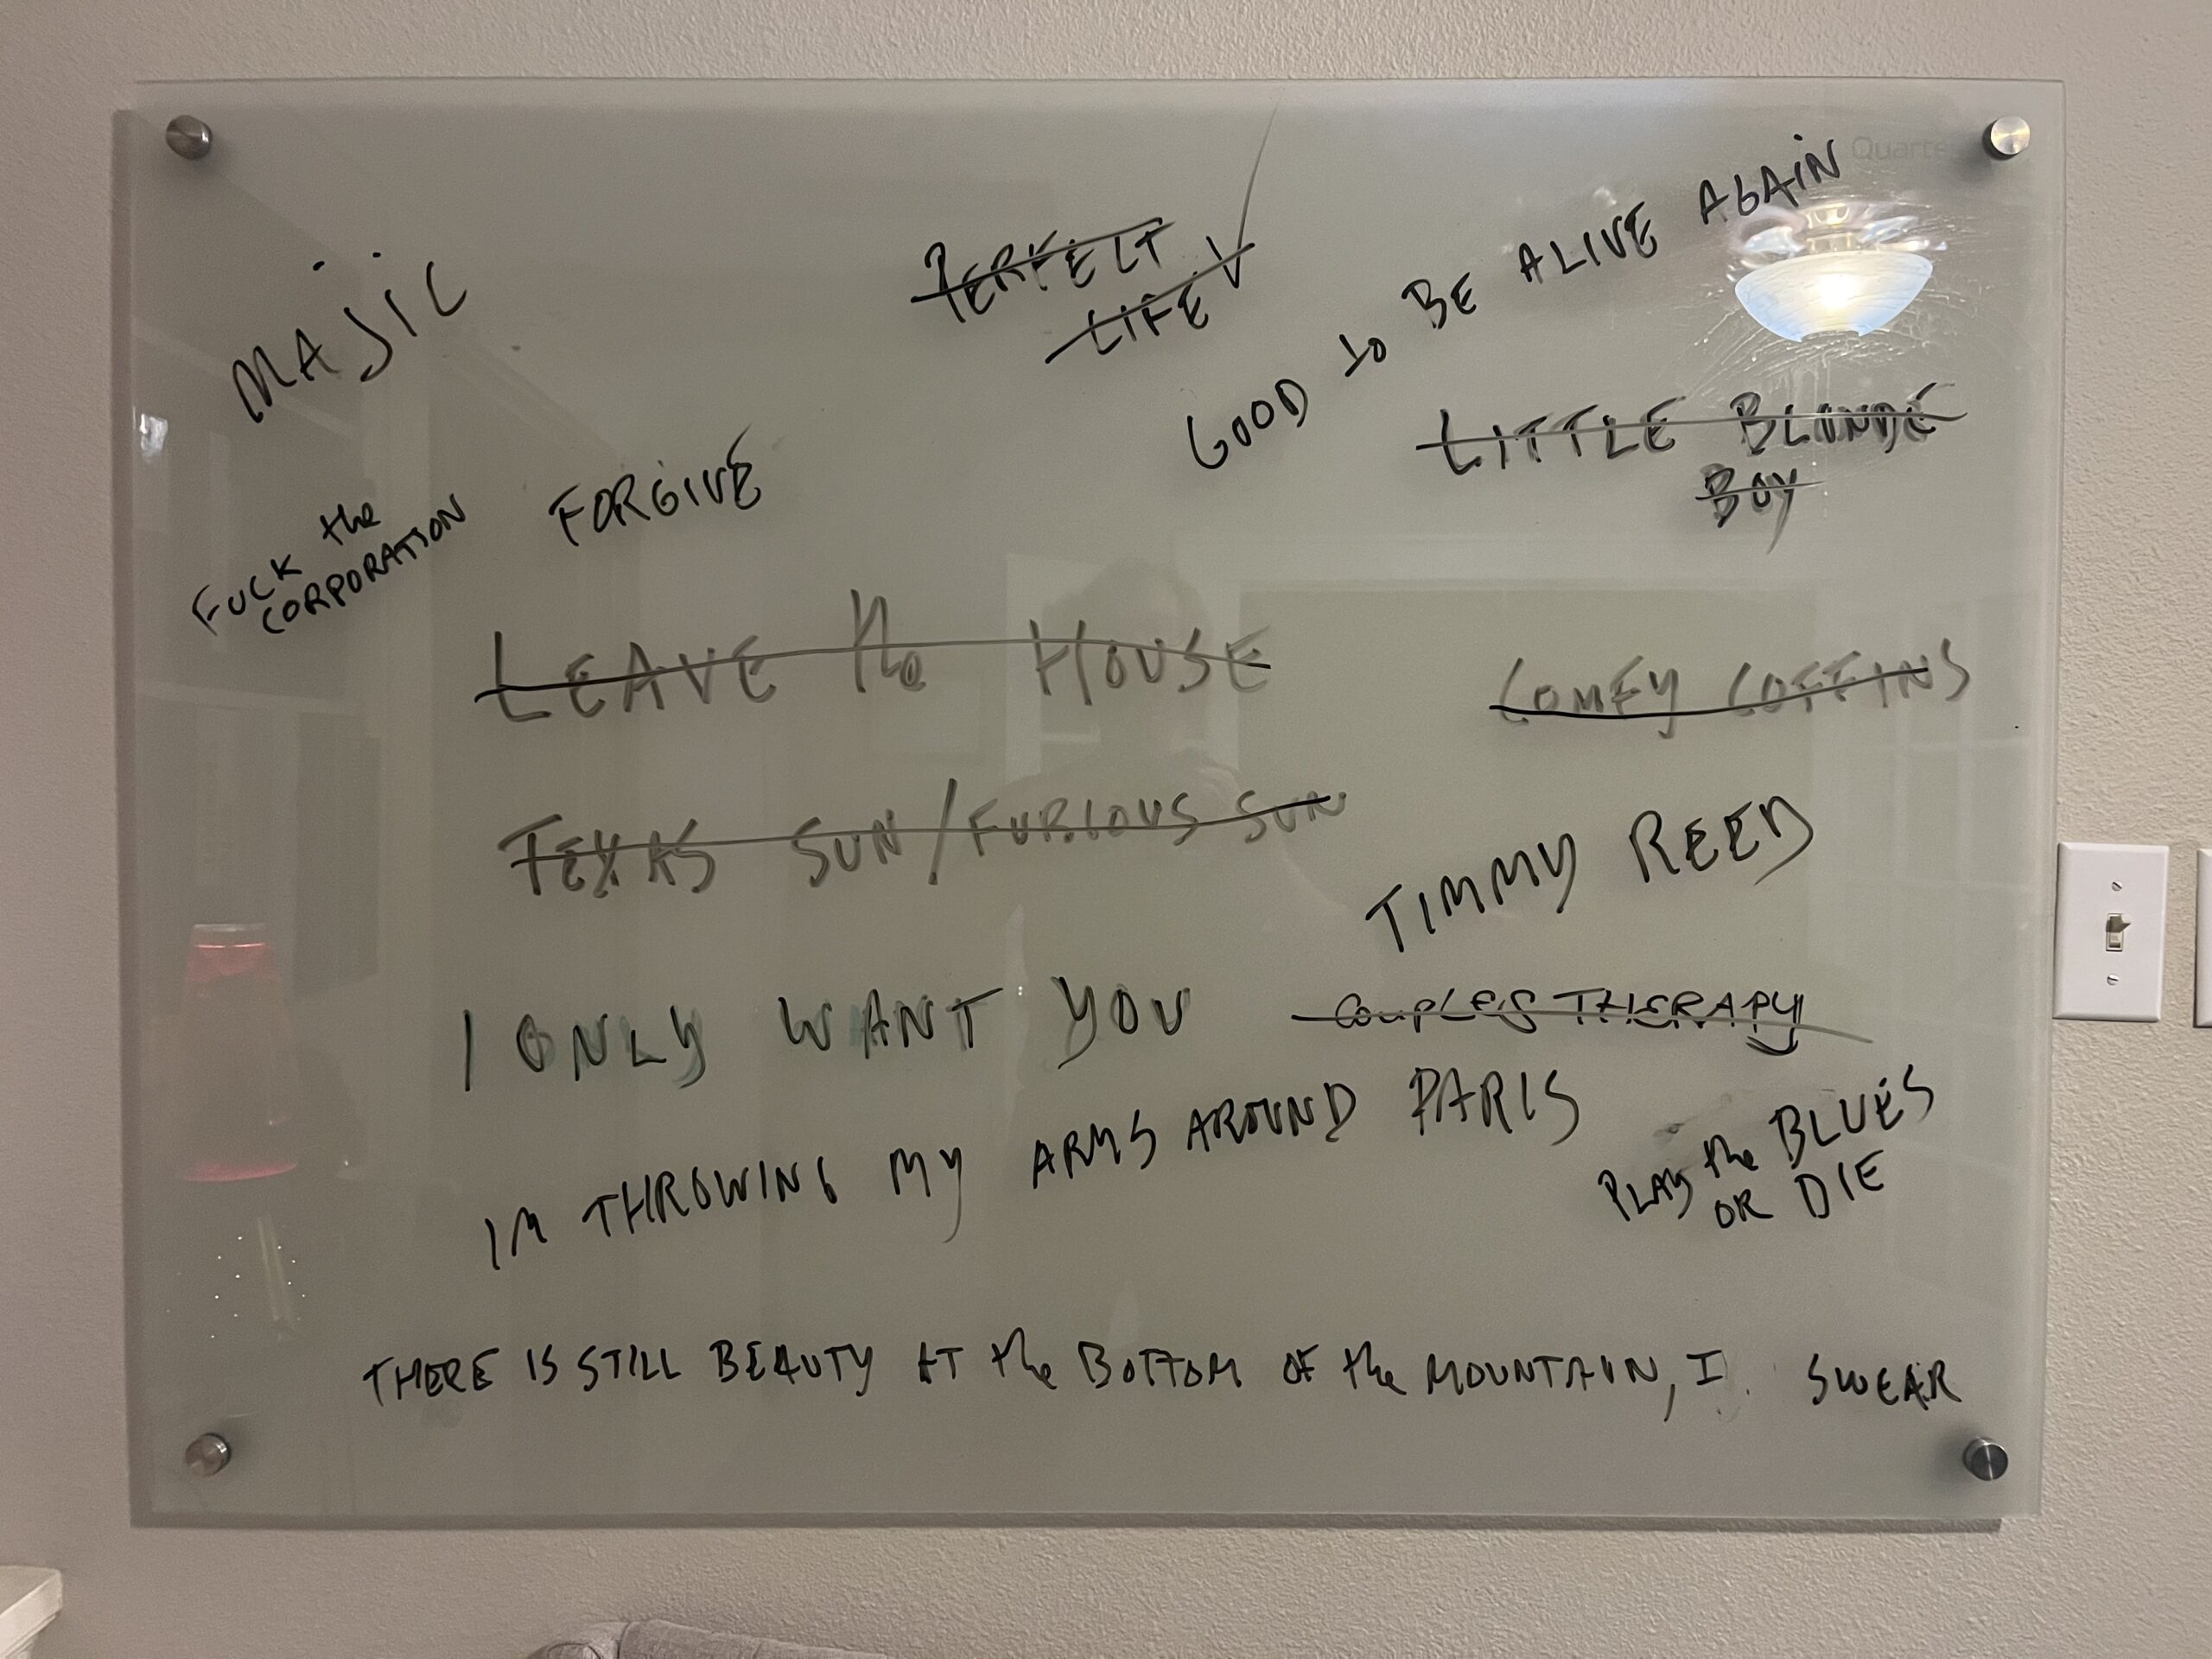 MAJIC
PERFECT
LIFE
GOOD to BE ALIVE AGAIN
Quarte
LITTLE BLONDE
BOY
FUCK the
CORPORATION
FORGIVE
LEAVE the HOUSE
COMFY COFFINS
TEXAS SUN/FURIOUS SUN
TIMMY REED
I ONLY WANT YOU
COUPLES THERAPY
IM THROWING MY ARMS AROUND PARIS
PLAY the BLUES
OR DIE
THERE IS STILL BEAUTY AT the BOTTOM OF the MOUNTAIN, I SWEAR